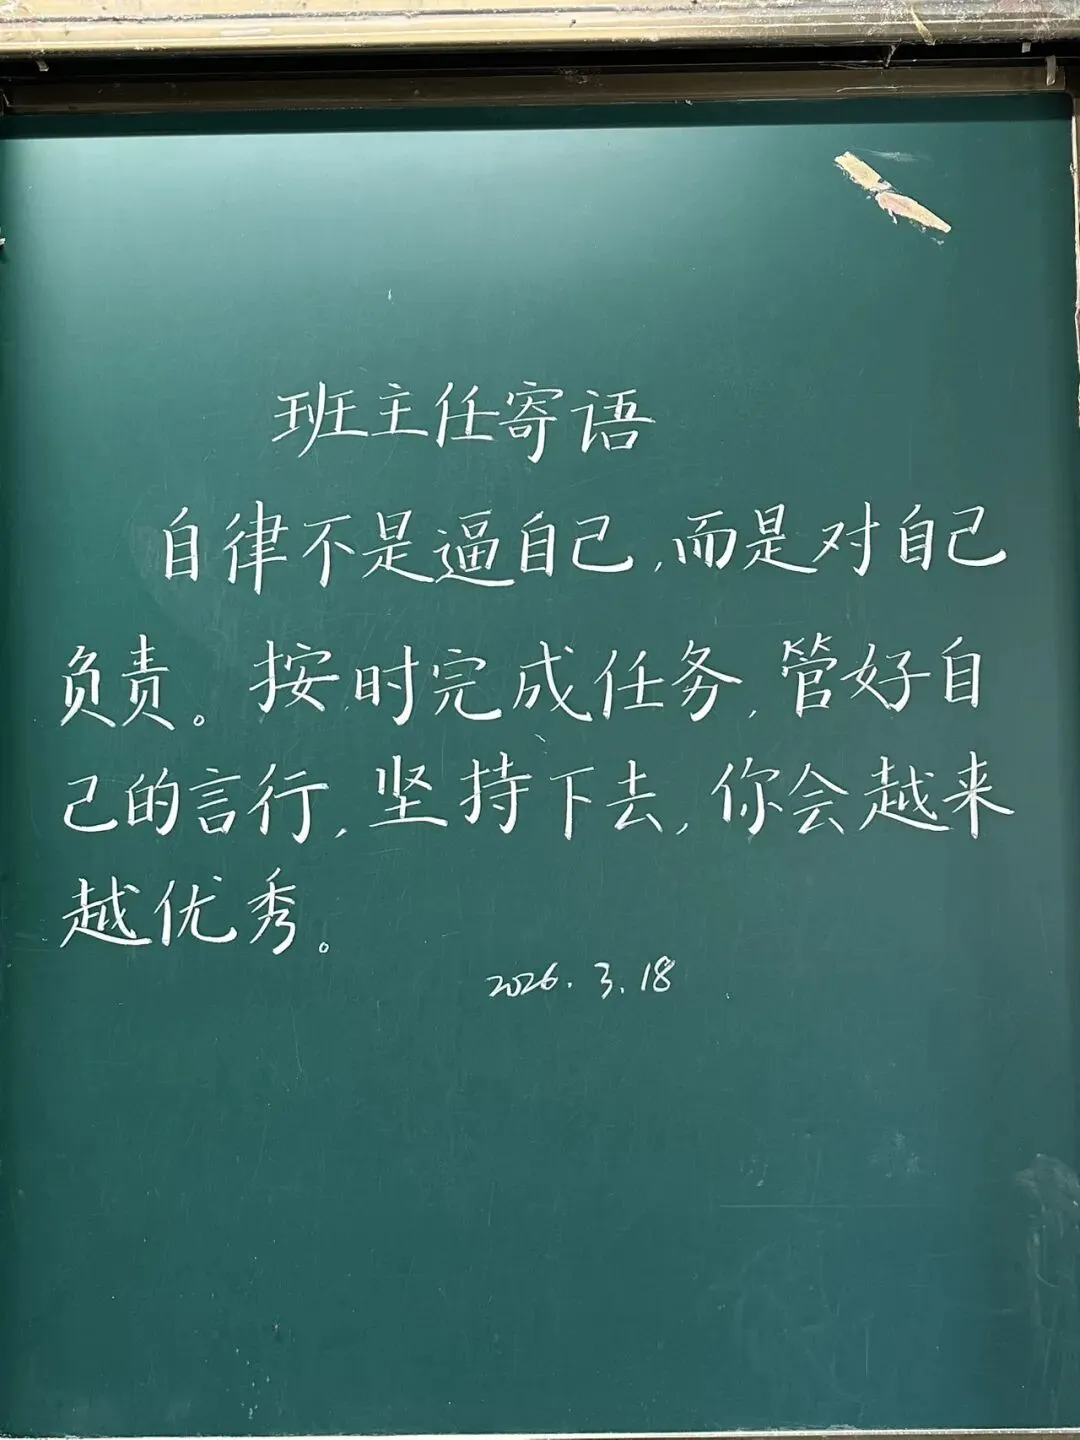 班主任寄语
自律不是逼自己,而是对自己
负责。按时完成任务,管好自
己的言行,坚持下去,你会越来
越优秀。
2026.3.18